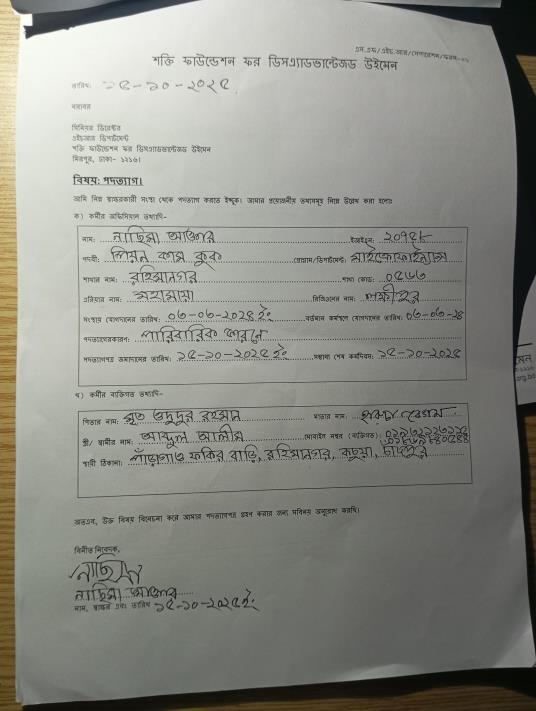 এস.এফ/এইচ.আর/সেপারেশন/ফরম-০১
শক্তি ফাউন্ডেশন ফর ডিসএ্যাডভান্টেজড উইমেন
তারিখ: ১৫-১০-২০২৫
বরাবর
সিনিয়র ডিরেক্টর
এইচআর ডিপার্টমেন্ট
শক্তি ফাউন্ডেশন ফর ডিসএ্যাডভান্টেজড উইমেন
মিরপুর, ঢাকা- ১২১৬।
বিষয়: পদত্যাগ।
আমি নিম্ন স্বাক্ষরকারী সংস্থা থেকে পদত্যাগ করতে ইচ্ছুক। আমার প্রয়োজনীয় তথ্যসমূহ নিম্নে উল্লেখ করা হলোঃ
ক) কর্মীর অফিসিয়াল তথ্যাদি-
নাম: নাছিমা আক্তার
পদবী: পিয়ন কাম কুক প্রোগ্রাম/ডিপার্টমেন্ট: মাইক্রোফাইন্যান্স
শাখার নাম: রহিমানগর শাখা কোড: ০৫৬৬
এরিয়ার নাম: রিজিওনের নাম: লক্ষীপুর
সংস্থায় যোগদানের তারিখ: ০৬-০৬-২০২৪ ইং বর্তমান কর্মস্থলে যোগদানের তারিখ: ০৬-০৬-২৪
পদত্যাগেরকারন: পারিবারিক কারনে
পদত্যাগপত্র জমাদানের তারিখ: ১৫-১০-২০২৫ ইং সম্ভাব্য শেষ কর্মদিবস: ১৫-১০-২০২৫
খ) কর্মীর ব্যক্তিগত তথ্যাদি-
পিতার নাম: মৃত রহমান মাতার নাম: বেগম
স্ত্রী/ স্বামীর নাম: আব্দুল আলীম মোবাইল নম্বর (ব্যক্তিগত):
স্থায়ী ঠিকানা: ফকির বাড়ি, রহিমানগর, কচুয়া, চাঁদপুর
অতএব, উক্ত বিষয় বিবেচনা করে আমার পদত্যাগপত্র গ্রহণ করার জন্য সবিনয় অনুরোধ করছি।
বিনীত নিবেদক,
নাছিমা
নাছিমা আক্তার
নাম, স্বাক্ষর এবং তারিখ ১৫-১০-২০২৫ ইং